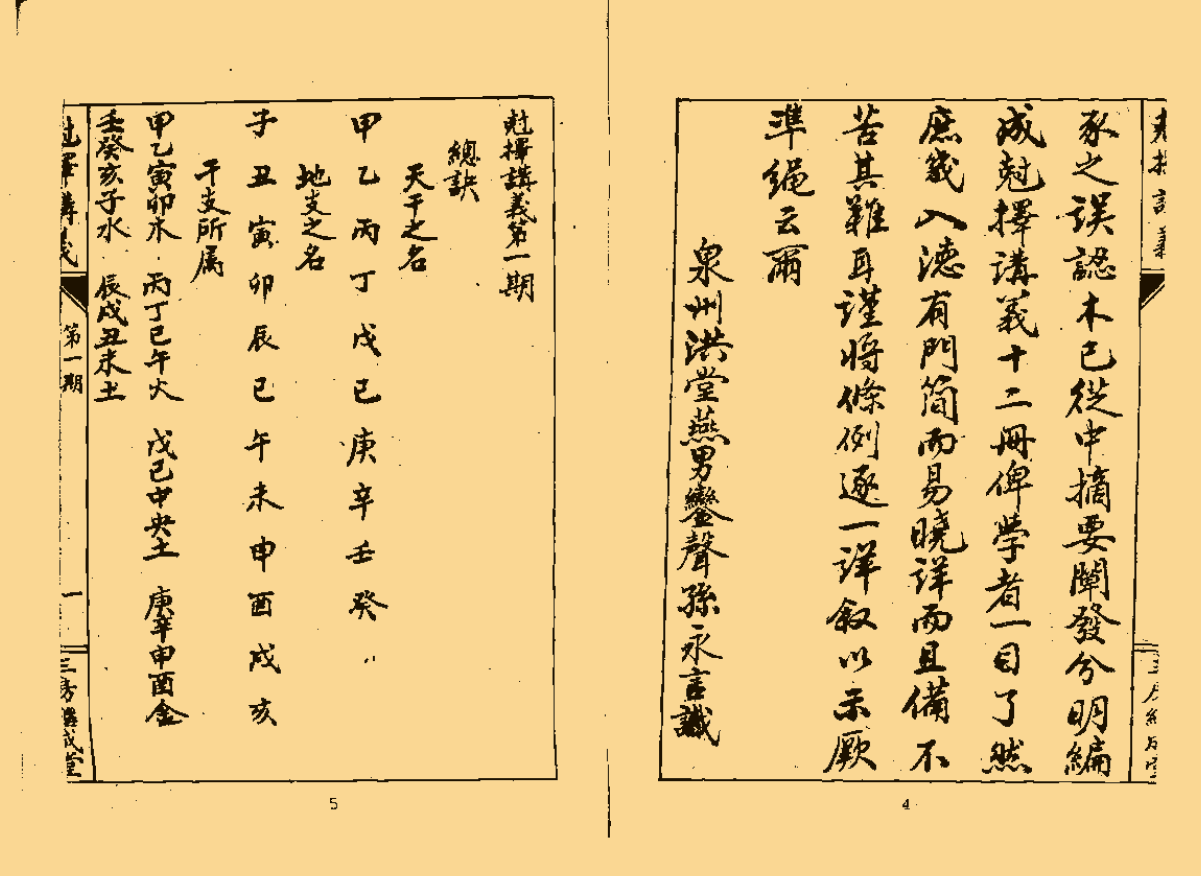 豕之誤認木已從中摘要闡發分明編
成尅擇講義十二冊俾學者一目了然
庶幾入德有門簡而易曉詳而且備不
苦其難耳謹將條例逐一詳叙以示厥
準繩云爾
泉州洪堂燕男鑾聲孫永言識
4
尅擇講義第一期
總訣
天干之名
甲乙丙丁戊己庚辛壬癸
地支之名
子丑寅卯辰巳午未申酉戌亥
干支所属
甲乙寅卯木 丙丁巳午火 戊己中央土 庚辛申酉金
壬癸亥子水 辰戌丑未土
尅擇講義 第一期 一
5